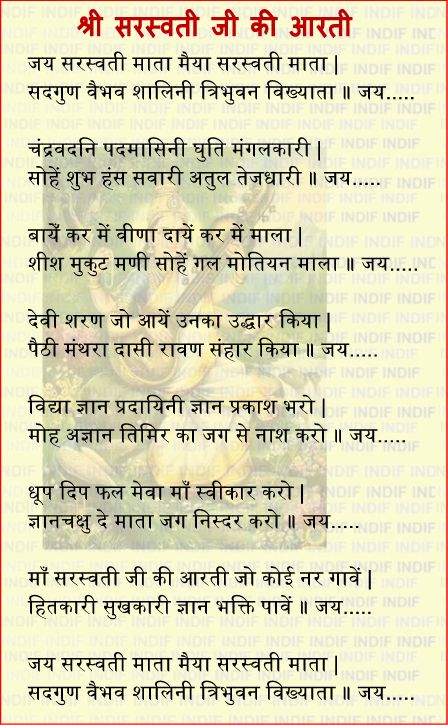 श्री सरस्वती जी की आरती
जय सरस्वती माता मैया सरस्वती माता |
सदगुण वैभव शालिनी त्रिभुवन विख्याता ॥ जय.....
चंद्रवदनि पदमासिनी घुति मंगलकारी |
सोहें शुभ हंस सवारी अतुल तेजधारी ॥ जय.....
बायेँ कर में वीणा दायें कर में माला |
शीश मुकुट मणी सोहें गल मोतियन माला ॥ जय.....
देवी शरण जो आयें उनका उद्धार किया |
पैठी मंथरा दासी रावण संहार किया ॥ जय.....
विद्या ज्ञान प्रदायिनी ज्ञान प्रकाश भरो |
मोह अज्ञान तिमिर का जग से नाश करो ॥ जय.....
धूप दिप फल मेवा माँ स्वीकार करो |
ज्ञानचक्षु दे माता जग निस्दर करो ॥ जय.....
माँ सरस्वती जी की आरती जो कोई नर गावें |
हितकारी सुखकारी ज्ञान भक्ति पावें ॥ जय.....
जय सरस्वती माता मैया सरस्वती माता |
सदगुण वैभव शालिनी त्रिभुवन विख्याता ॥ जय.....